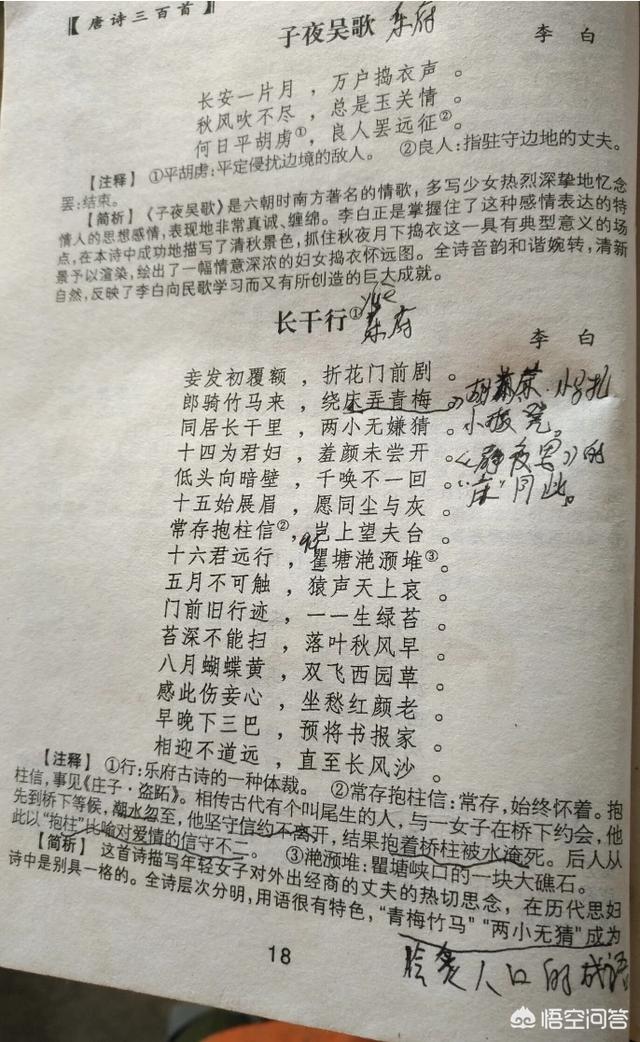 【唐诗三百首】
子夜吴歌 乐府
李白
长安一片月，万户捣衣声。
秋风吹不尽，总是玉关情。
何日平胡虏①，良人罢远征②。
【注释】 ①平胡虏:平定侵扰边境的敌人。 ②良人:指驻守边地的丈夫。
罢:结束。
【简析】《子夜吴歌》是六朝时南方著名的情歌，多写少女热烈深挚地忆念
情人的思想感情，表现地非常真诚、缠绵。李白正是掌握住了这种感情表达的特
点，在本诗中成功地描写了清秋景色，抓住秋夜月下捣衣这一具有典型意义的场
景予以渲染，绘出了一幅情意深浓的妇女捣衣怀远图。全诗音韵和谐婉转，清新
自然，反映了李白向民歌学习而又有所创造的巨大成就。
长干行① 乐府
李白
妾发初覆额，折花门前剧。
郎骑竹马来，绕床弄青梅。
同居长干里，两小无嫌猜。
十四为君妇，羞颜未尝开。
低头向暗壁，千唤不一回。
十五始展眉，愿同尘与灰。
常存抱柱信②，岂上望夫台。
十六君远行，瞿塘滟滪堆③。
五月不可触，猿声天上哀。
门前旧行迹，一一生绿苔。
苔深不能扫，落叶秋风早。
八月蝴蝶黄，双飞西园草。
感此伤妾心，坐愁红颜老。
早晚下三巴，预将书报家。
相迎不道远，直至长风沙。
小板凳。
《静夜思》的
“床”同此。
【注释】 ①行:乐府古诗的一种体裁。 ②常存抱柱信:常存，始终怀着。抱
柱信，事见《庄子·盗跖》。相传古代有个叫尾生的人，与一女子在桥下约会，他
先到桥下等候，潮水忽至，他坚守信约不离开，结果抱着桥柱被水淹死。后人从
此以“抱柱”比喻对爱情的信守不二。 ③滟滪堆:瞿塘峡口的一块大礁石。
【简析】 这首诗描写年轻女子对外出经商的丈夫的热切思念，在历代思妇
诗中是别具一格的。全诗层次分明，用语很有特色，“青梅竹马”“两小无猜”成为
脍炙人口的成语
18
悟空问答